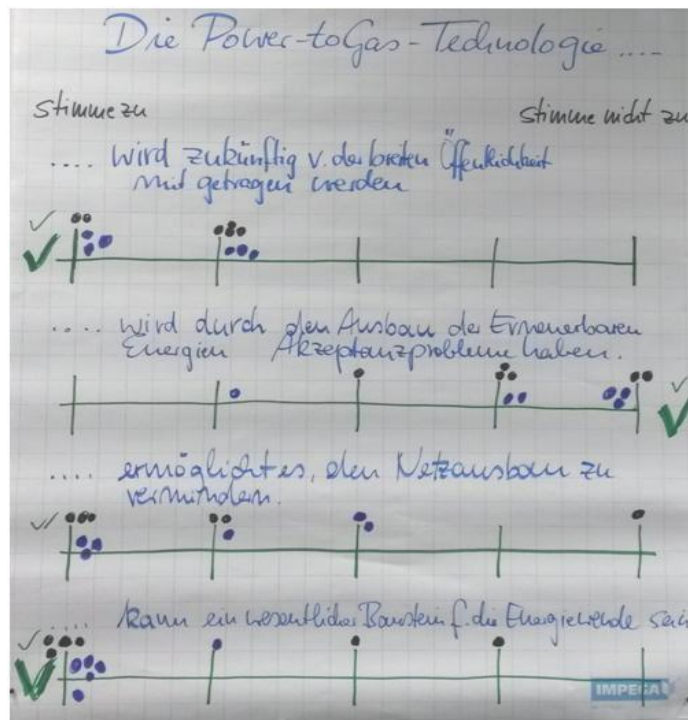 Die Power-toGas-Technologie ....
stimme zu
stimme nicht zu
.... wird zukünftig v. der breiten Öffentlichkeit
mit getragen werden
.... wird durch den Ausbau der Erneuerbaren
Energien Akzeptanzprobleme haben.
.... ermöglicht es, den Netzausbau zu
vermindern.
.... kann ein wesentlicher Baustein f. die Energiewende sein
IMPEGA